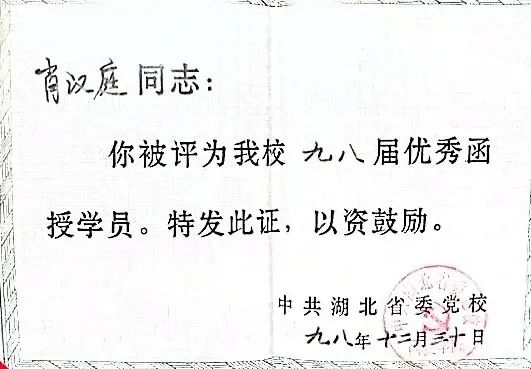 肖汉庭同志：
你被评为我校九八届优秀函
授学员。特发此证，以资鼓励。
中共湖北省委党校
九八年十二月三十日